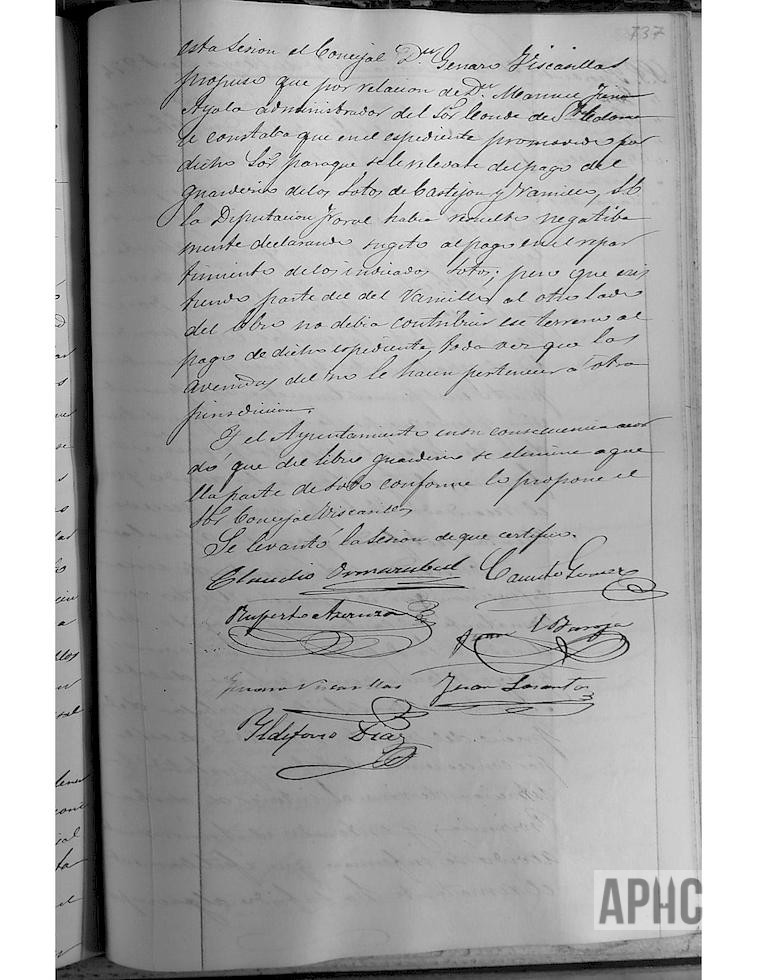 737
esta sesion el Concejal Dn Genaro Viscasillas
propuso que por relacion de Dn Manuel
Ayala administrador del Sor Conde de Sta Coloma
le constaba que en el espediente promovido por
dicho Sor para que se le relevase del pago del
guarderio de los Sotos de Castejon y Ramillo,
la Diputacion Foral habia resuelto negatiba
mente declarando sugeto al pago en el repar
timiento de los indicados Sotos; pero que exis
tiendo parte del del Ramillo al otro lado
del Ebro no debia contribuir ese terreno al
pago de dicho espediente toda vez que las
avenidas del rio le hacen pertenecer a otra
jurisdiccion.
Y el Ayuntamiento en su consecuencia acor
dó que del libro guarderio se elimine aque
lla parte de soto conforme lo propone el
Sor Concejal Viscasillas
Se levantó la sesion de que certifico.
Claudio Camilo Gomez
Ruperto
Juan Baroja
Genaro Viscasillas Juan Losantos
Ildefonso Diaz
APHC